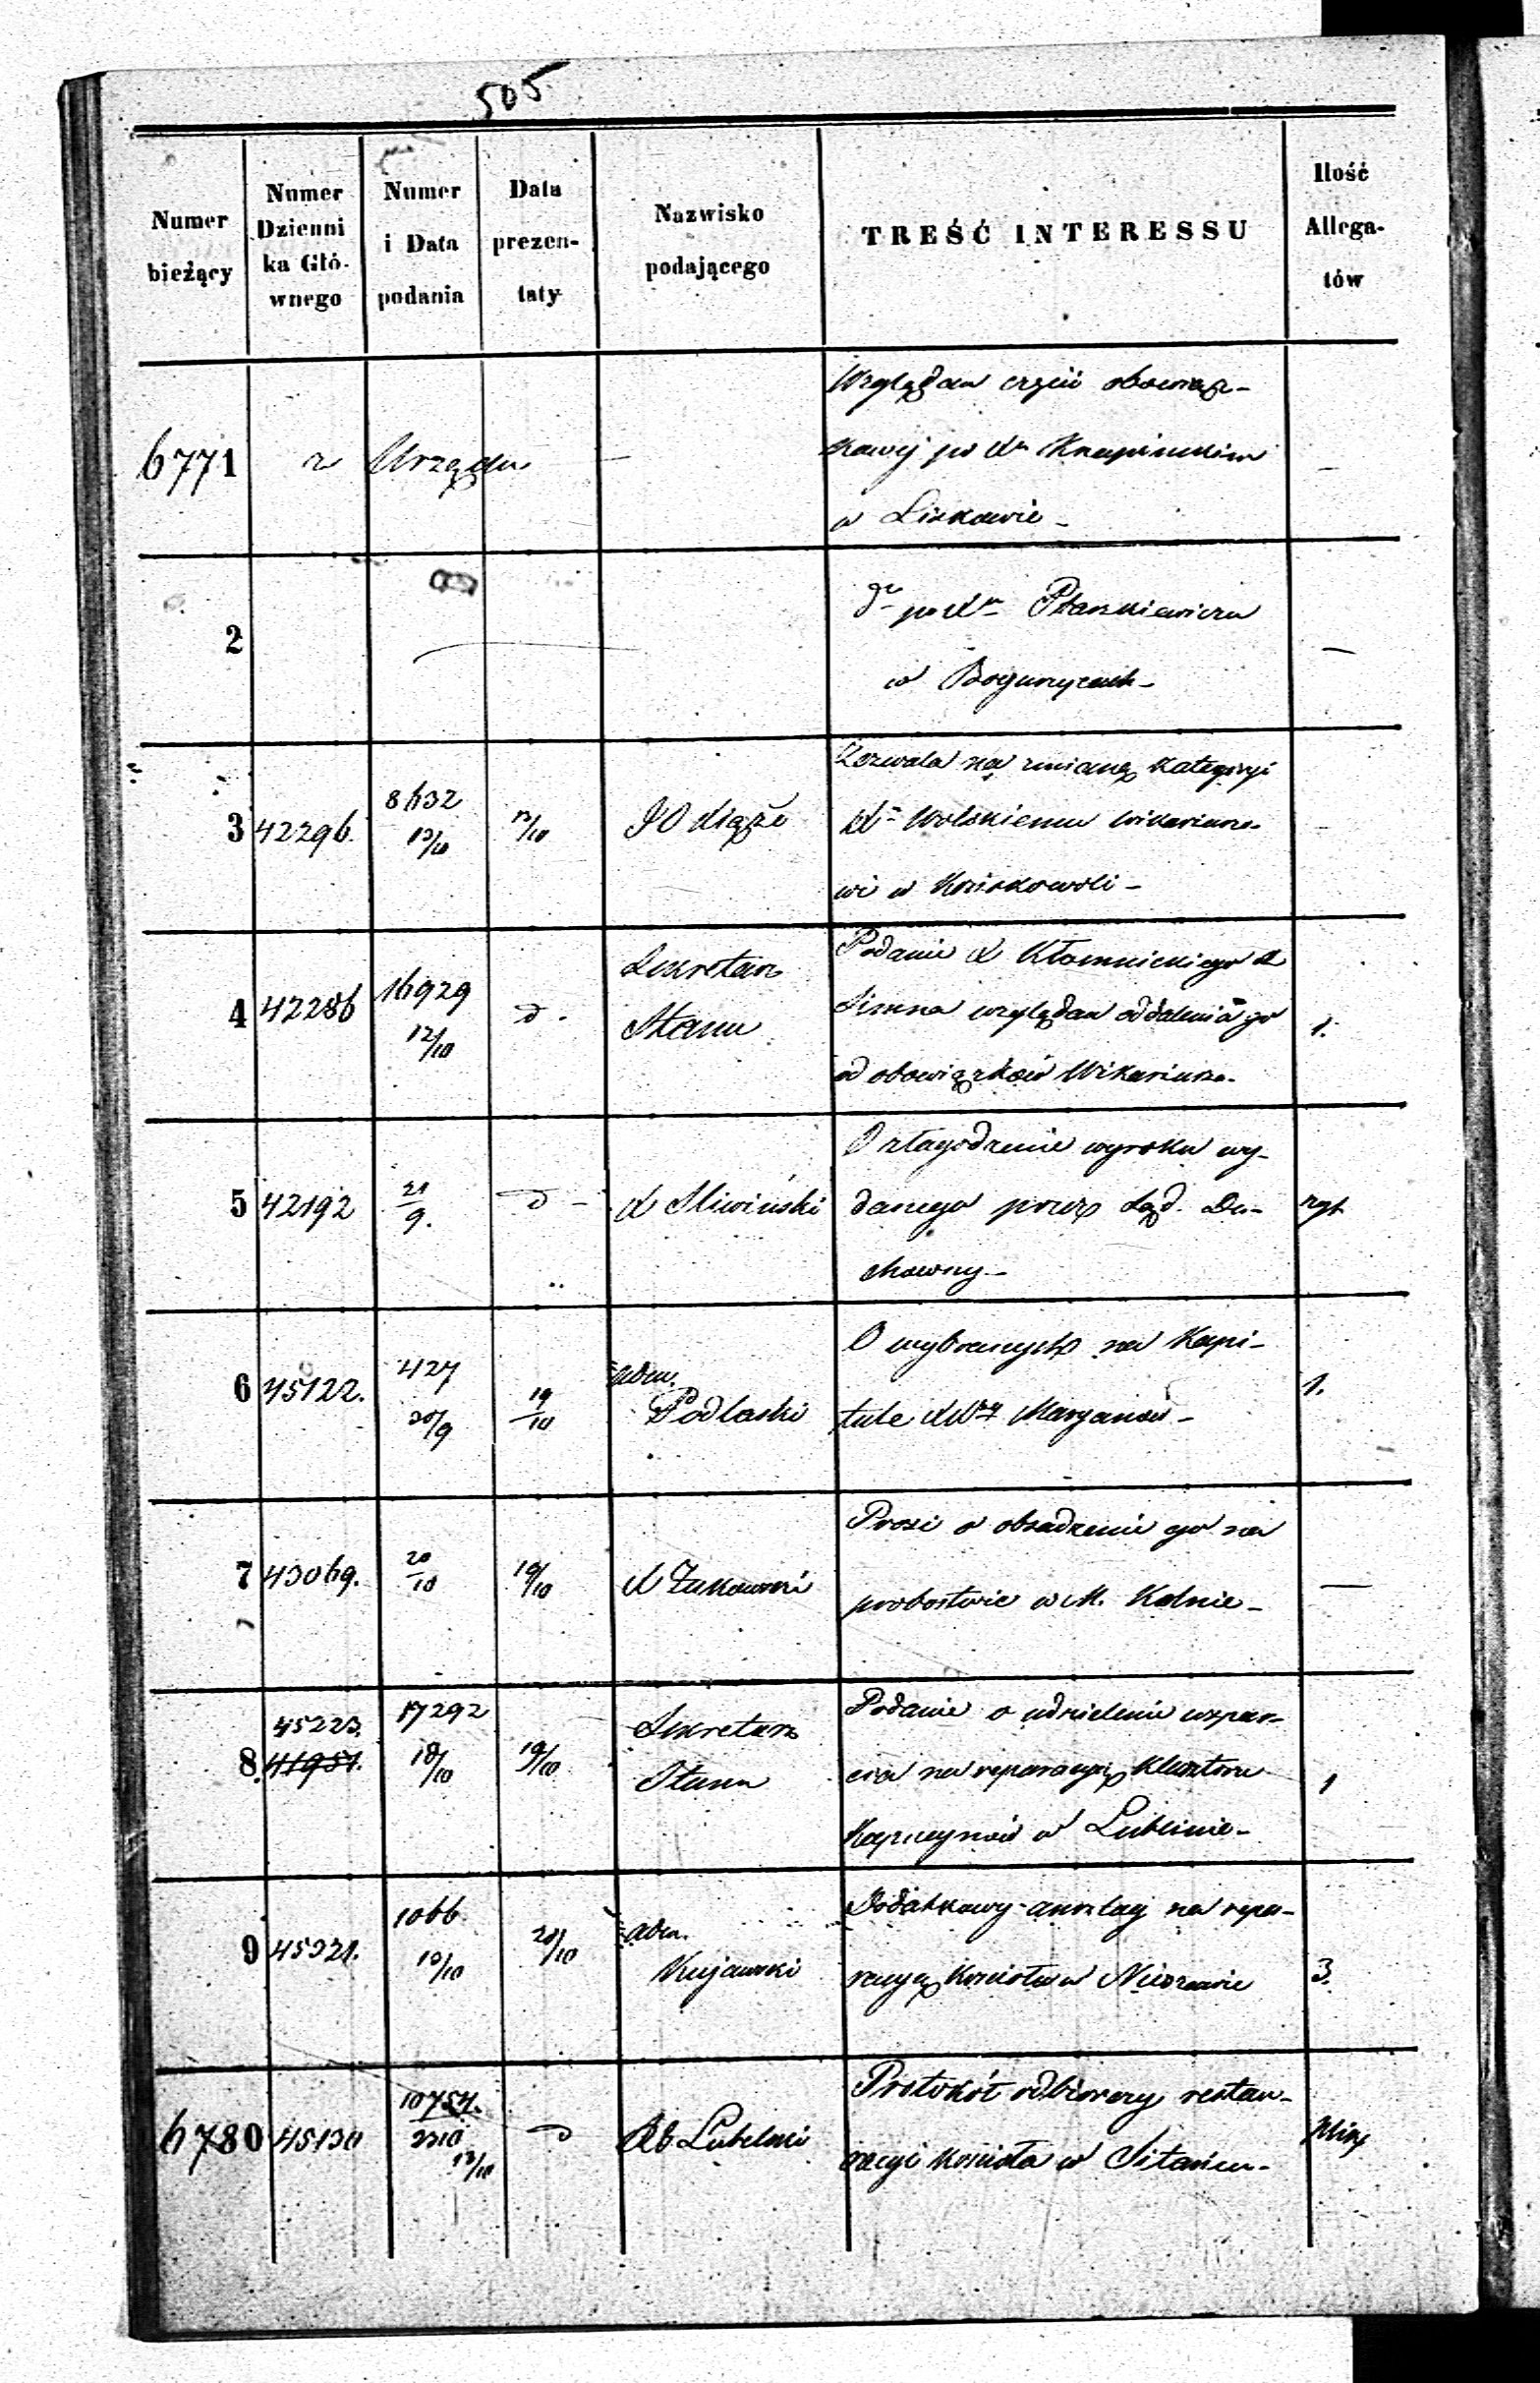 505
Numer bieżący
Numer Dzienni ka Głó- wnego
Numer i Data podania
Data prezen- taty
Nazwisko podającego
TREŚĆ INTERESSU
Ilość Allega- tów
6771 z Urzędu —
Względem części obowiąz-
kowej po Xu Knapińskim
w Liskowie -
—
2
do po Xu Ptaszkiewiczu
w Bogurzycach -
—
3 42296. 8632 13/10 13/10 JO Xiąże
Zezwala na zmianę kategoryi
X Wolskiemu Wikariuszo-
wi w Końskowoli -
4 42286 16929 12/10 d -
Sekretarz
Stanu
Podanie X Kłomnickiego z
Simna względem oddalenia go
od obowiązków Wikariusza.
1.
5 42192 21/9. d - X Sliwiński
O złagodzenie wyroku wy-
danego przez Sąd. Du-
chowny -
6 45122. 427 20/9 19/10
Adm.
Podlaski
O wybranych na Kapi-
tule XX Maryanów -
1.
7 43069. 20/10 19/10 X Żukowski
Prosi o obsadzenie go na
probostwie w M. Kolnie -
—
8 45223. 41951. 17292 18/10 19/10
Sekretarz
Stanu
Podanie o udzielenie wspar-
cia na reparacyą Klasztoru
Kapucynów w Lublinie -
1
9 45321. 1066. 10/10 20/10
Adm.
Kujawski
Dodatkowy anszlag na repa-
racyą Kościoła w Nieszawie
3.
6780 45130 10757. 2310 13/10 d Ab Lubelski
Protokół odbiorczy restau-
racyi Kościoła w Sitańcu -